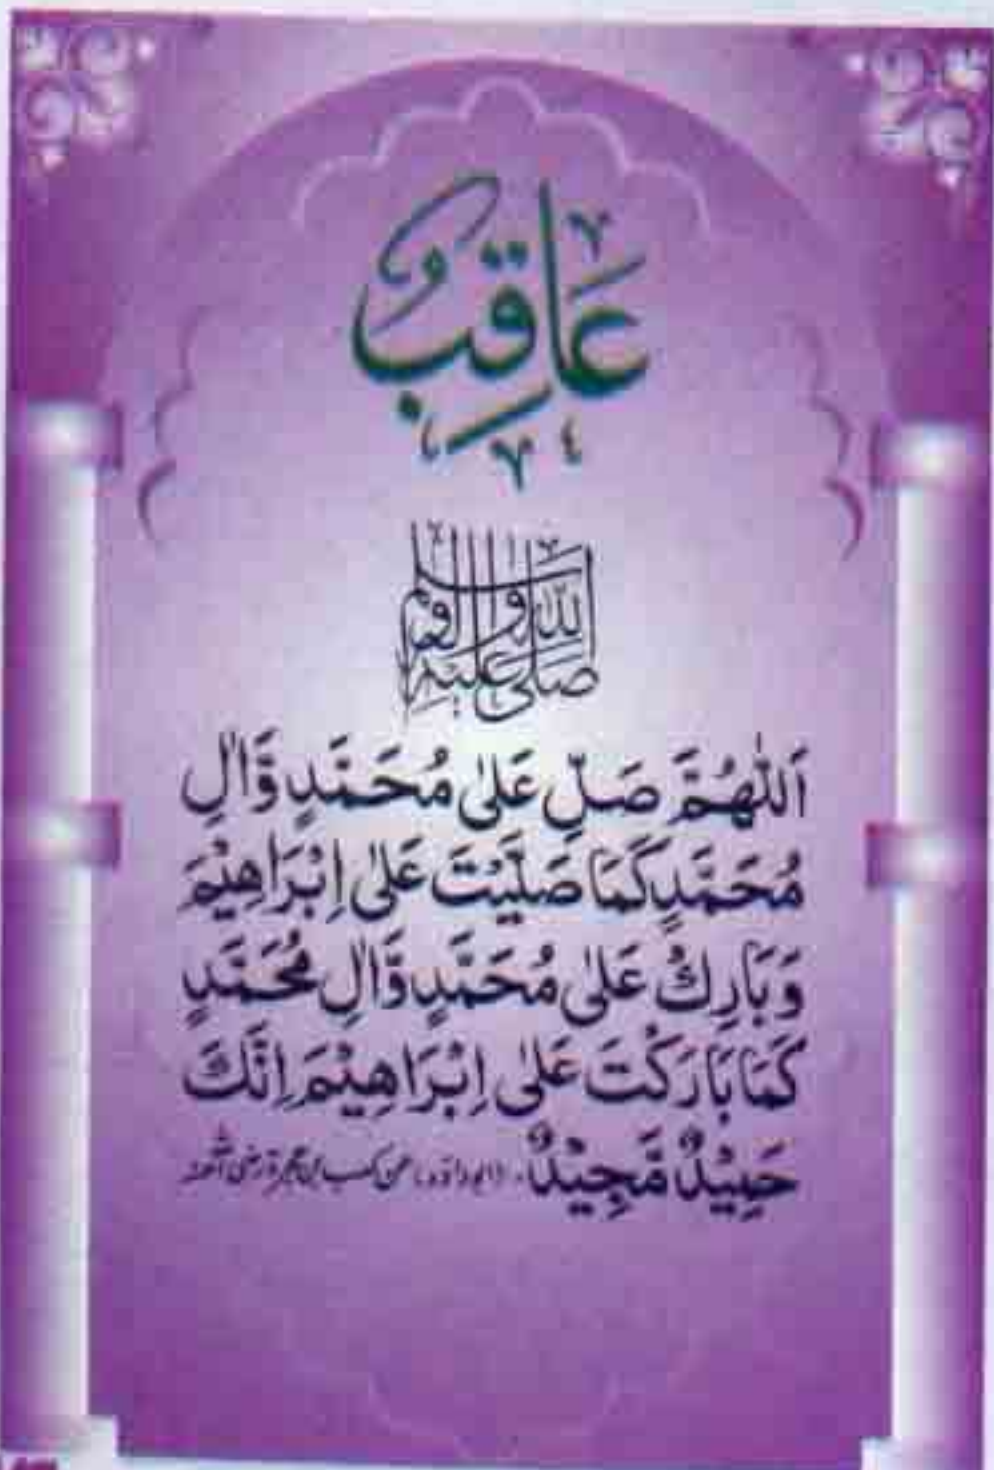 عَاقِبُ
صلى الله عليه واله وسلم
اَللّٰهُمَّ صَلِّ عَلٰى مُحَمَّدٍ وَّاٰلِ
مُحَمَّدٍ كَمَا صَلَّيْتَ عَلٰى اِبْرَاهِيْمَ
وَبَارِكْ عَلٰى مُحَمَّدٍ وَّاٰلِ مُحَمَّدٍ
كَمَا بَارَكْتَ عَلٰى اِبْرَاهِيْمَ اِنَّكَ
حَمِيْدٌ مَّجِيْدٌ. (ابوداؤد) عن كعب ابن عجرة رضى الله عنه